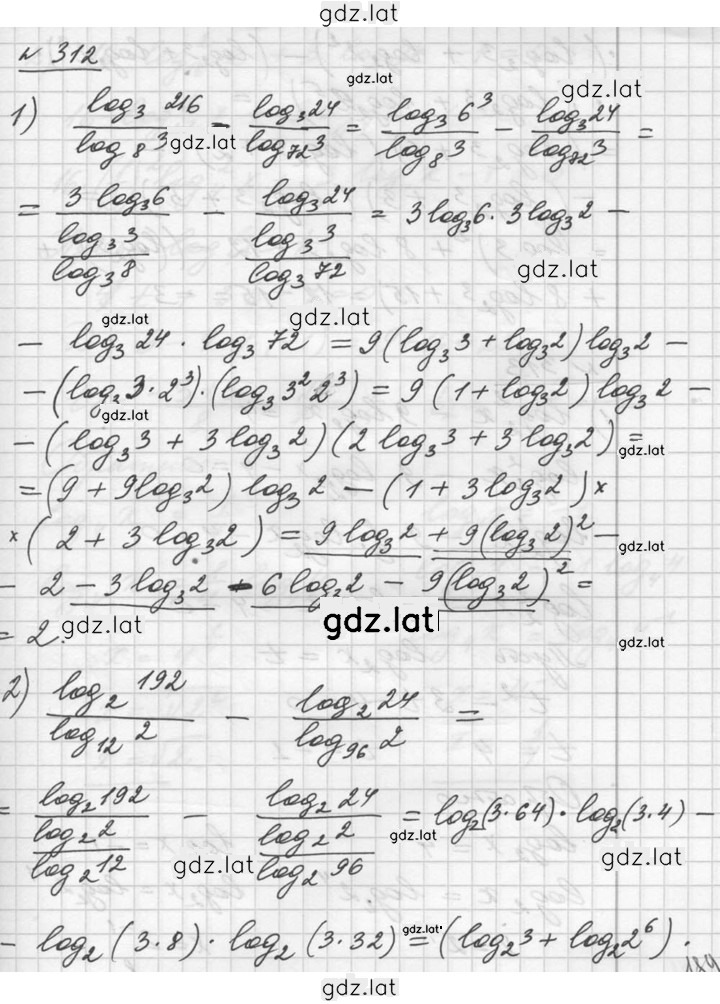 gdz.lat
№ 312
gdz.lat
gdz.lat
1) \frac{log_3 216}{log_8 3} - \frac{log_3 24}{log_{72} 3} = \frac{log_3 6^3}{log_8 3} - \frac{log_3 24}{log_{72} 3} =
gdz.lat
= \frac{3 log_3 6}{\frac{log_3 3}{log_3 8}} - \frac{log_3 24}{\frac{log_3 3}{log_3 72}} = 3 log_3 6 · 3 log_3 2 -
gdz.lat
gdz.lat
gdz.lat
- log_3 24 · log_3 72 = 9 (log_3 3 + log_3 2) log_3 2 -
- (log_3 3 · 2^3) · (log_3 3^2 2^3) = 9 (1 + log_3 2) log_3 2 -
gdz.lat
- (log_3 3 + 3 log_3 2) (2 log_3 3 + 3 log_3 2) =
gdz.lat
= (9 + 9 log_3 2) log_3 2 - (1 + 3 log_3 2) ×
× (2 + 3 log_3 2) = 9 log_3 2 + 9 (log_3 2)^2 -
gdz.lat
- 2 - 3 log_3 2 - 6 log_3 2 - 9 (log_3 2)^2 =
= 2.
gdz.lat
gdz.lat
gdz.lat
2) \frac{log_2 192}{log_{12} 2} - \frac{log_2 24}{log_{96} 2} =
= \frac{log_2 192}{\frac{log_2 2}{log_2 12}} - \frac{log_2 24}{\frac{log_2 2}{log_2 96}} = log_2 (3·64) · log_2 (3·4) -
gdz.lat
gdz.lat
gdz.lat
- log_2 (3·8) · log_2 (3·32) = (log_2 3 + log_2 2^6) ·
gdz.lat
189
gdz.lat